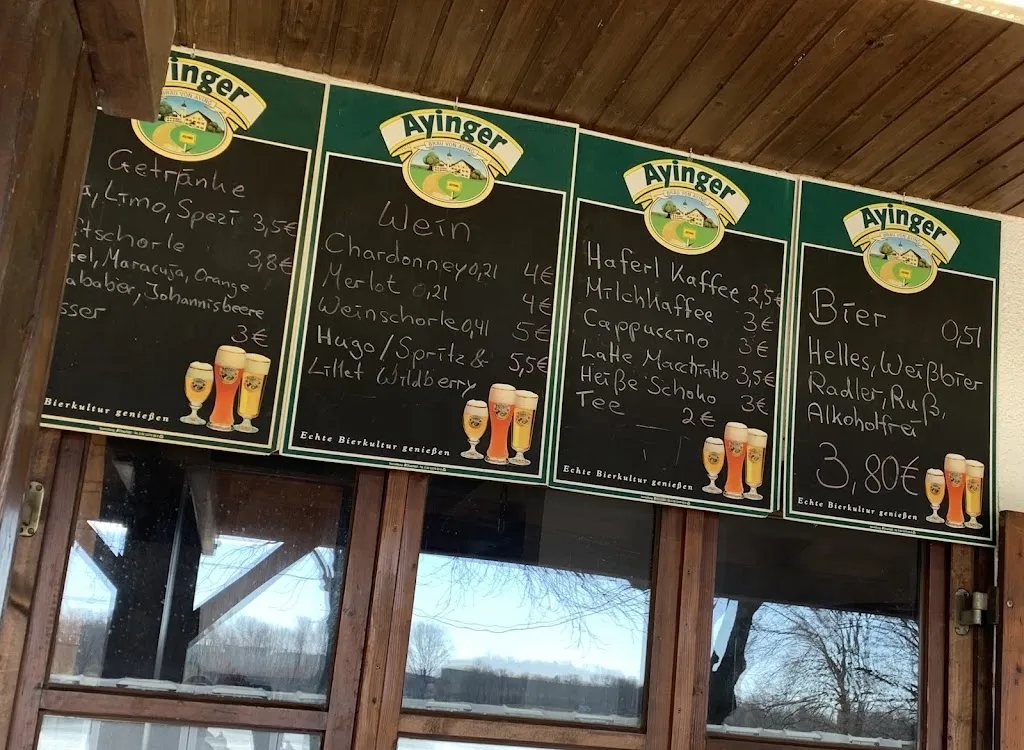 Ayinger
BRÄU VON AYING
Getränke
Limo, Spezi 3,5€
tschorle 3,8€
fel, Maracuja, Orange
ababer, Johannisbeere
sser
3€
Bierkultur genießen
Ayinger
BRÄU VON AYING
Wein
Chardonney 0,2l 4€
Merlot 0,2l 4€
Weinschorle 0,4l 5€
Hugo/Spritz & 5,5€
Lillet Wildberry
Echte Bierkultur genießen
Ayinger
BRÄU VON AYING
Haferl Kaffee 2,5€
Milchkaffee 3€
Cappuccino 3€
Latte Macchiatto 3,5€
Heiße Schoko 3€
Tee 2€
Echte Bierkultur genießen
Ayinger
BRÄU VON AYING
Bier 0,5l
Helles, Weißbier
Radler, Ruß,
Alkoholfrei
3,80€
Echte Bierkultur genießen